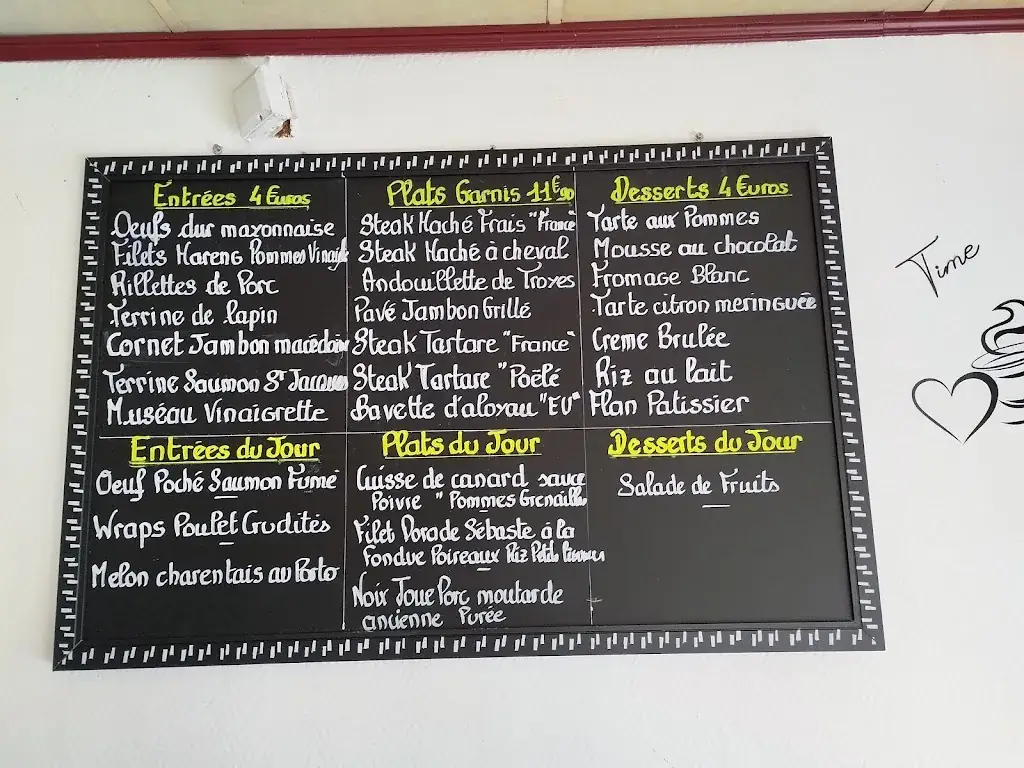 Entrées 4 Euros
Oeufs dur mayonnaise
Filets Hareng Pommes Vinaig
Rillettes de Porc
Terrine de lapin
Cornet Jambon macédoine
Terrine Saumon St Jacques
Muséau Vinaigrette
Plats Garnis 11€90
Steak Haché Frais "France"
Steak Haché à cheval
Andouillette de Troyes
Pavé Jambon Grillé
Steak Tartare "France"
Steak Tartare "Poêlé
Bavette d'aloyau "EU"
Desserts 4 Euros
Tarte aux Pommes
Mousse au chocolat
Fromage Blanc
Tarte citron meringuée
Creme Brulée
Riz au lait
Flan Patissier
Entrées du Jour
Oeuf Poché Saumon Fumé
Wraps Poulet Crudités
Melon charentais au Porto
Plats du Jour
Cuisse de canard sauce
Poivre " Pommes Grenaille
Filet Dorade Sébaste à la
Fondue Poireaux Riz
Noix Joue Porc moutarde
ancienne Purée
Desserts du Jour
Salade de Fruits
Time